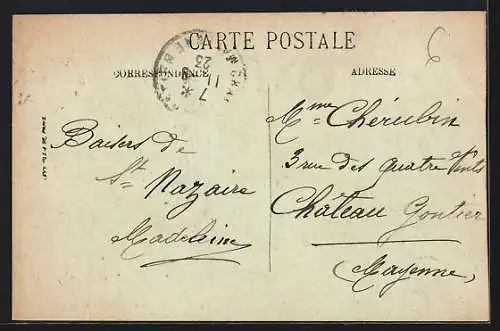 CARTE POSTALE
CORRESPONDANCE
ADRESSE
Baisers de
St Nazaire
Madeleine
Mme Chérubin
3 rue des quatre Vents
Château Gontier
(Mayenne)
6